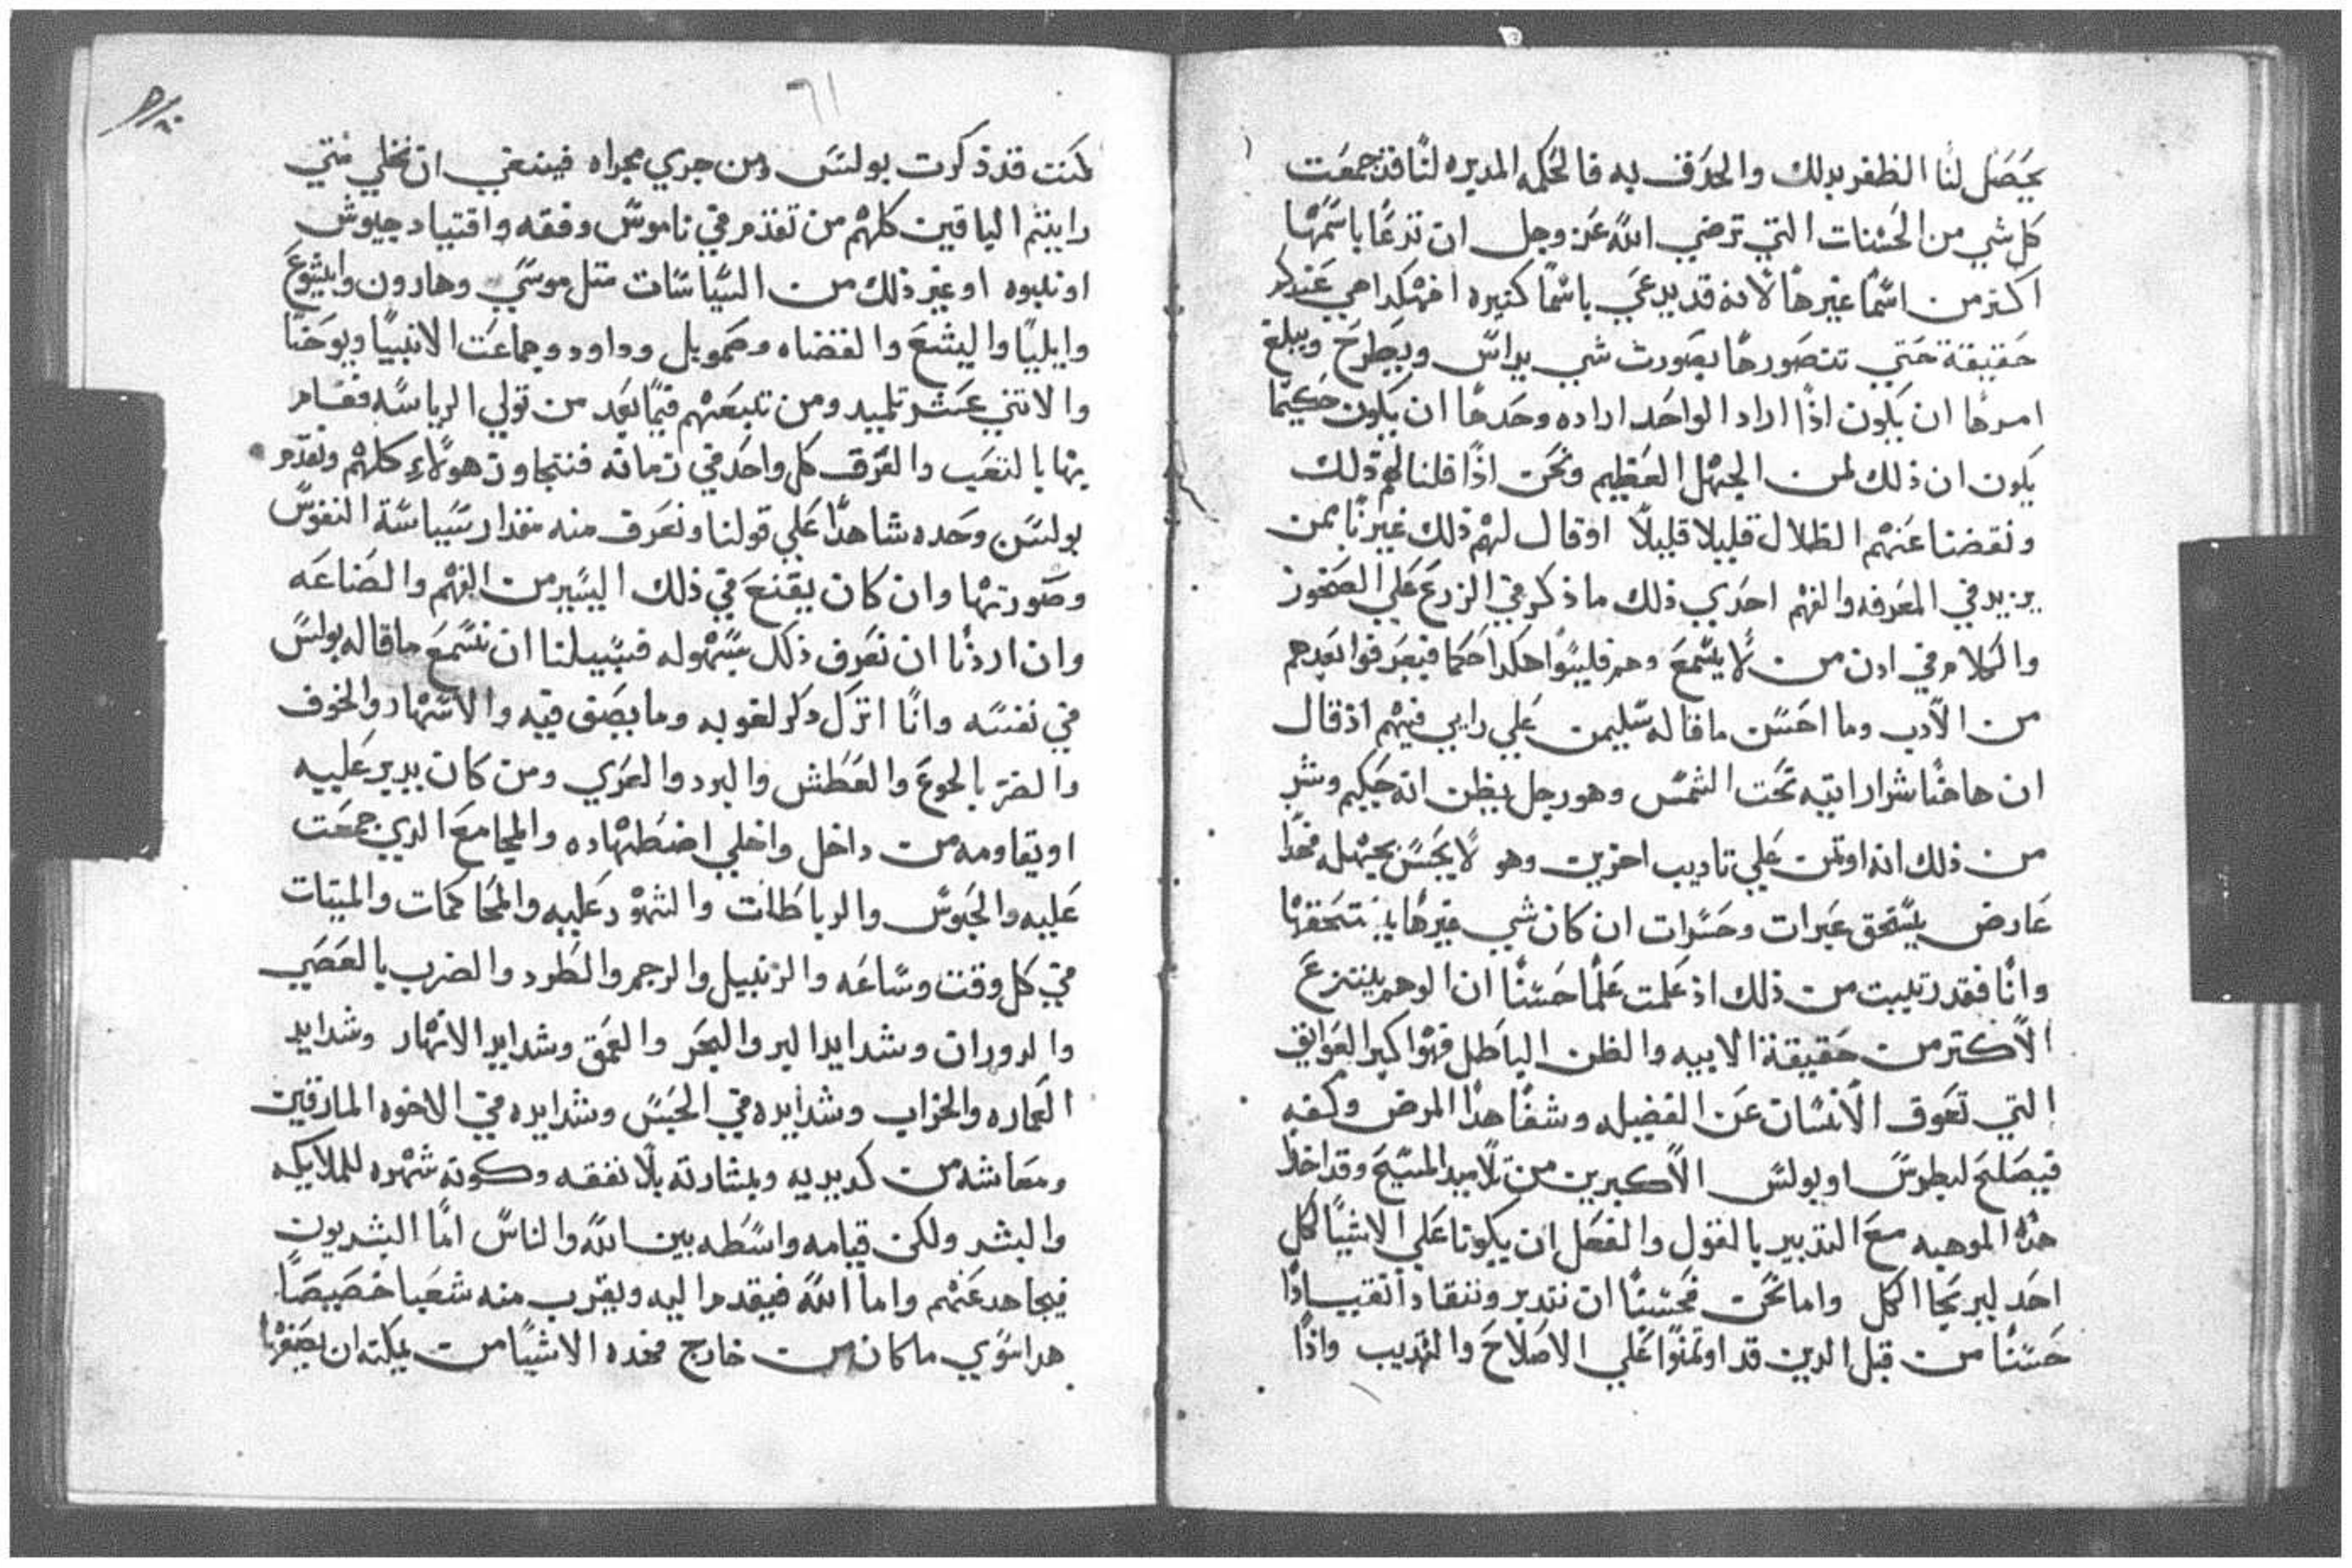 يحصل لنا الظفر بدلك والحدق به فالحكمه المديره لنا قد جمعت
كل شي من الحسنات التي ترضي الله عز وجل ان تدعا باسمها
اكتر من اسما غيرها لانه قد يدعي باسما كتيره افهكدا هي عندكم
حقيقة حتي تتصورها بصورت شي يداس ويطرح ويبلغ
امرها ان يكون اذا اراد الواحد اراده وحدها ان يكون حكيما
يكون ان ذلك لمن الجهل العظيم ونحن اذا قلنا لهم ذلك
ونقضنا عنهم الظلال قليلا قليلا او قال لهم ذلك غيرنا ممن
يزيد في المعرفه والفهم احدي ذلك ما ذكر في الزرع علي الصخور
والكلام في ادن من لا يسمع وهم فليسوا هكدا حكما فيعرفوا بعدهم
من الادب وما احسن ما قاله سليمن علي رايي فيهم اذ قال
ان هاهنا شرا رايته تحت الشمس وهو رجل يظن انه حكيم وشر
من ذلك انه اوتمن علي تاديب اخرين وهو لا يحس بجهله فهدا
عارض يستحق عبرات وحسرات ان كان شي غيرها يستحقها
وانا فقد رتيت من ذلك اذ علمت علما حسنا ان الوهم ينتزع
الاكتر من حقيقة الابيه والظن الباطل فهوا كبر العوايق
التي تعوق الانسان عن الفضيله وشفا هدا المرض وكفه
فيصلح لبطرس او بولس الاكبرين من تلاميد المسيح وقد اخدا
هده الموهبه مع التدبير بالقول والفعل ان يكونا علي الاشيا لكل
احد ليربحا الكل واما نحن فحسبنا ان نتدبر وننقاد انقيادا
حسنا من قبل الدين قد اوتمنوا علي الاصلاح والتهديب واذا
٦١
كنت قد ذكرت بولس ومن جري مجراه فينبغي ان نخلي متي
رايتم الباقين كلهم من تقدم في ناموس وفقه واقتياد جيوش
او نبوه او غير ذلك من السياسات متل موسي وهارون وايشوع
وايليا واليشع والقضاه وصمويل وداود وجماعت الانبيا ويوحنا
والاتني عشر تلميد ومن تبعهم فيما بعد من تولي الرياسه فقام
بها بالتعب والعرق كل واحد في زمانه فنتجاوز هولاء كلهم ونقدم
بولس وحده شاهدا علي قولنا ونعرف منه مقدار سياسة النفوس
وصورتها وان كان يقنع في ذلك اليسير من الفهم والصناعه
وان اردنا ان نعرف ذلك بسهوله فسبيلنا ان نسمع ما قاله بولس
في نفسه وانا اترك دكر لغوبه وما يصق فيه والاسهار والخوف
والضر بالجوع والعطش والبرد والعري ومن كان يدير عليه
او يقاومه من داخل واخلي اضطهاده والمجامع الدي جمعت
عليه والحبوس والرباطات والشهود عليه والمحاكمات والميتات
في كل وقت وساعه والزنبيل والرجم والطرد والضرب بالعصي
والدوران وشدايد البر والبحر والعمق وشدايد الانهار وشدايد
العماره والخراب وشدايده في الحبس وشدايده في الاخوه المارقين
ومعاشه من كد يديه وبشارته بلا نفقه وكونه شهره للملايكه
والبشر ولكن قيامه واسطه بين الله والناس اما البشريون
فيجاهد عنهم واما الله فيقدم اليه ويقرب منه شعبا خصيصا
هدا سوي ما كان من خارج فهده الاشيا من يمكنه ان يصفها